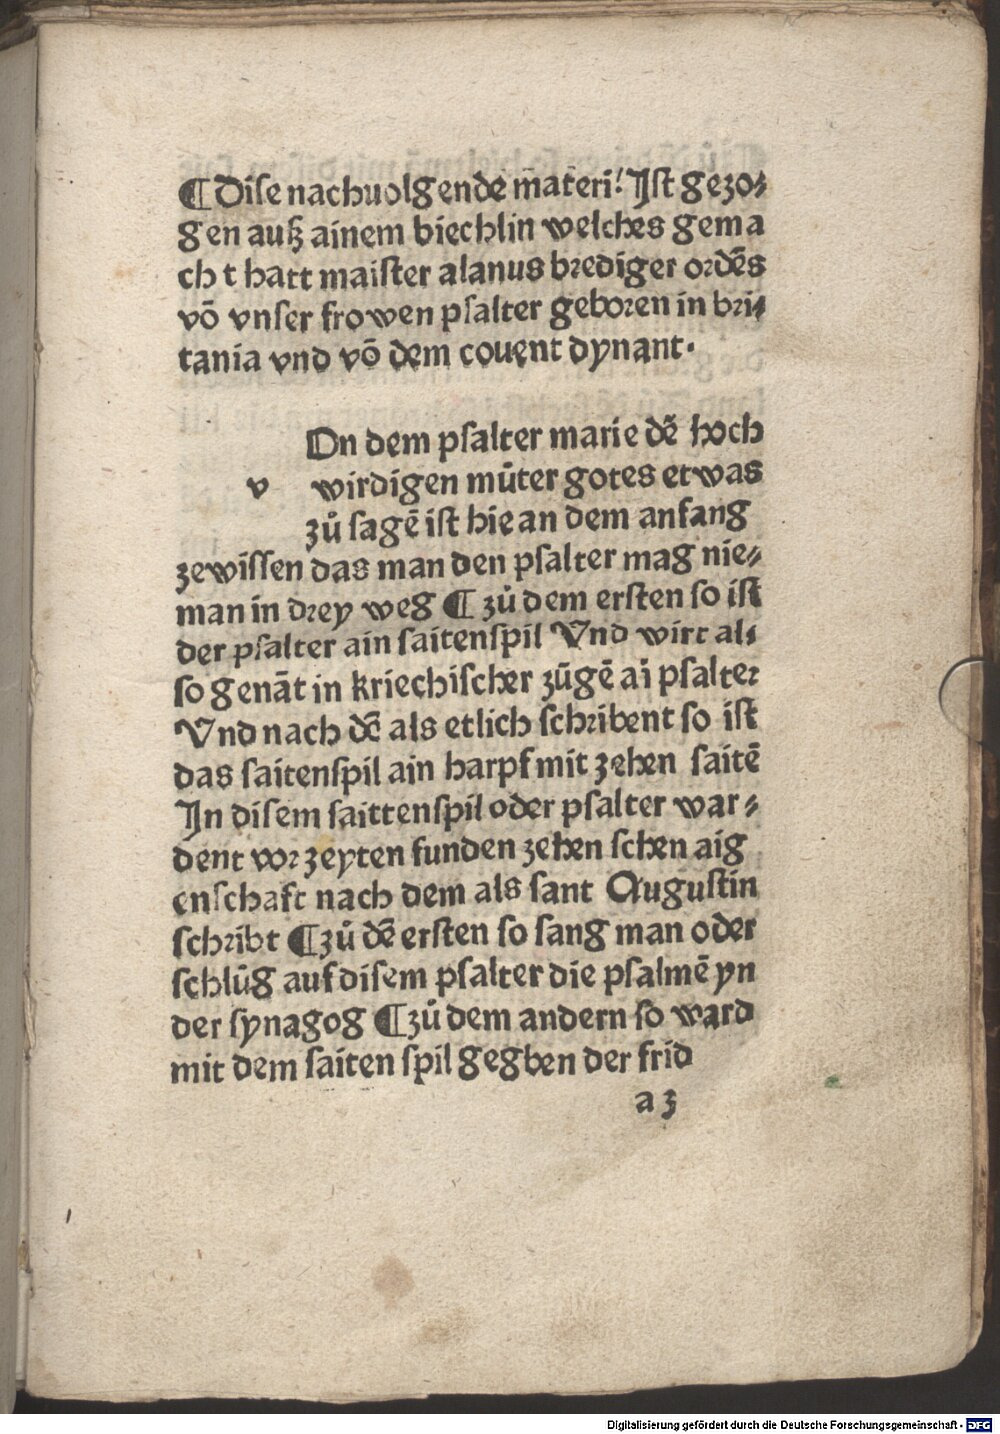 ¶ Dise nachuolgende materi! Ist gezo-
gen auß ainem biechlin welches gema
cht hatt maister alanus brediger ordēs
vō vnser frowen psalter geboren in bri-
tania vnd vō dem couent dynant.
On dem psalter marie dē hoch
v wirdigen mūter gotes etwas
zů sagē ist hie an dem anfang
zewissen das man den psalter mag nie-
man in drey weg ¶ zů dem ersten so ist
der psalter ain saitenspil Vnd wirt al-
so genāt in kriechischer zūgē aī psalter
Vnd nach dē als etlich schribent so ist
das saitenspil ain harpf mit zehen saitē
In disem saittenspil oder psalter war-
dent vor zeyten funden zehen schen aig
enschaft nach dem als sant Augustin
schribt ¶ zů dē ersten so sang man oder
schlūg auf disem psalter die psalmē yn
der synagog ¶ zů dem andern so ward
mit dem saiten spil gegben der frid
a 3
Digitalisierung gefördert durch die Deutsche Forschungsgemeinschaft - DFG